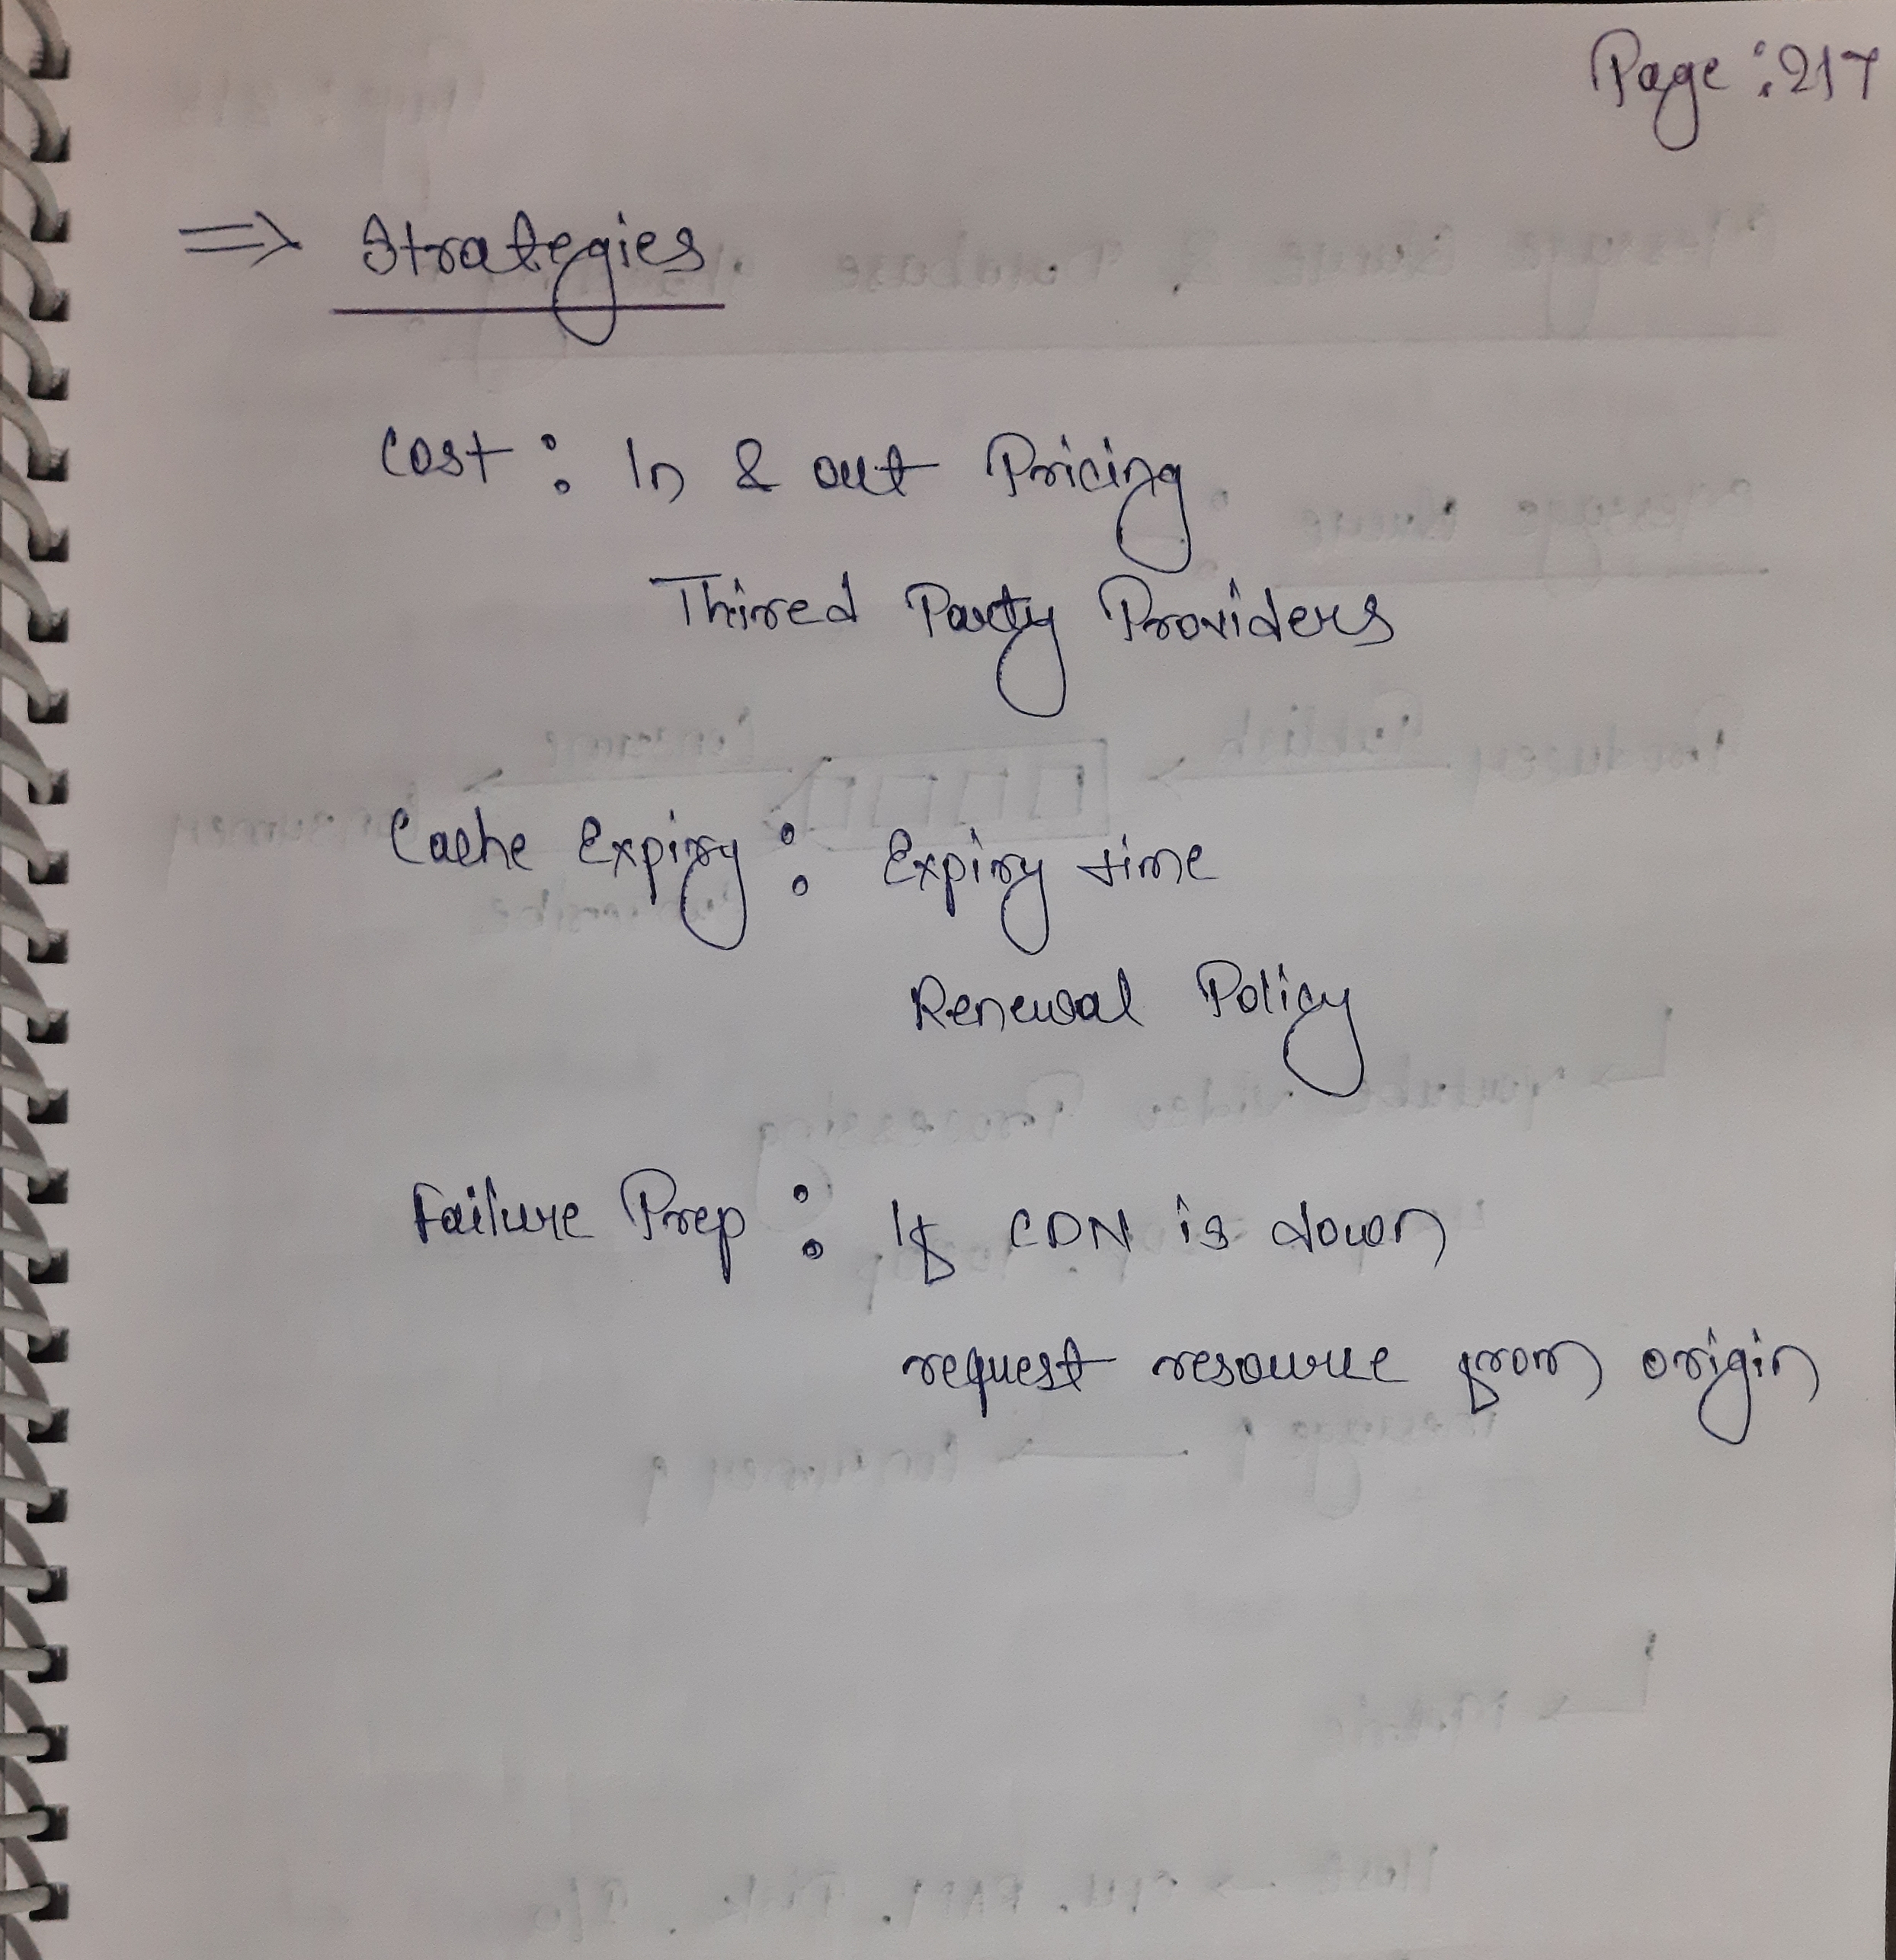 Page : 217
=> Strategies
Cost : In & out Pricing
Thired Party Providers
Cache Expiry : Expiry time
Renewal Policy
Failure Prep : If CDN is down
request resource from origin